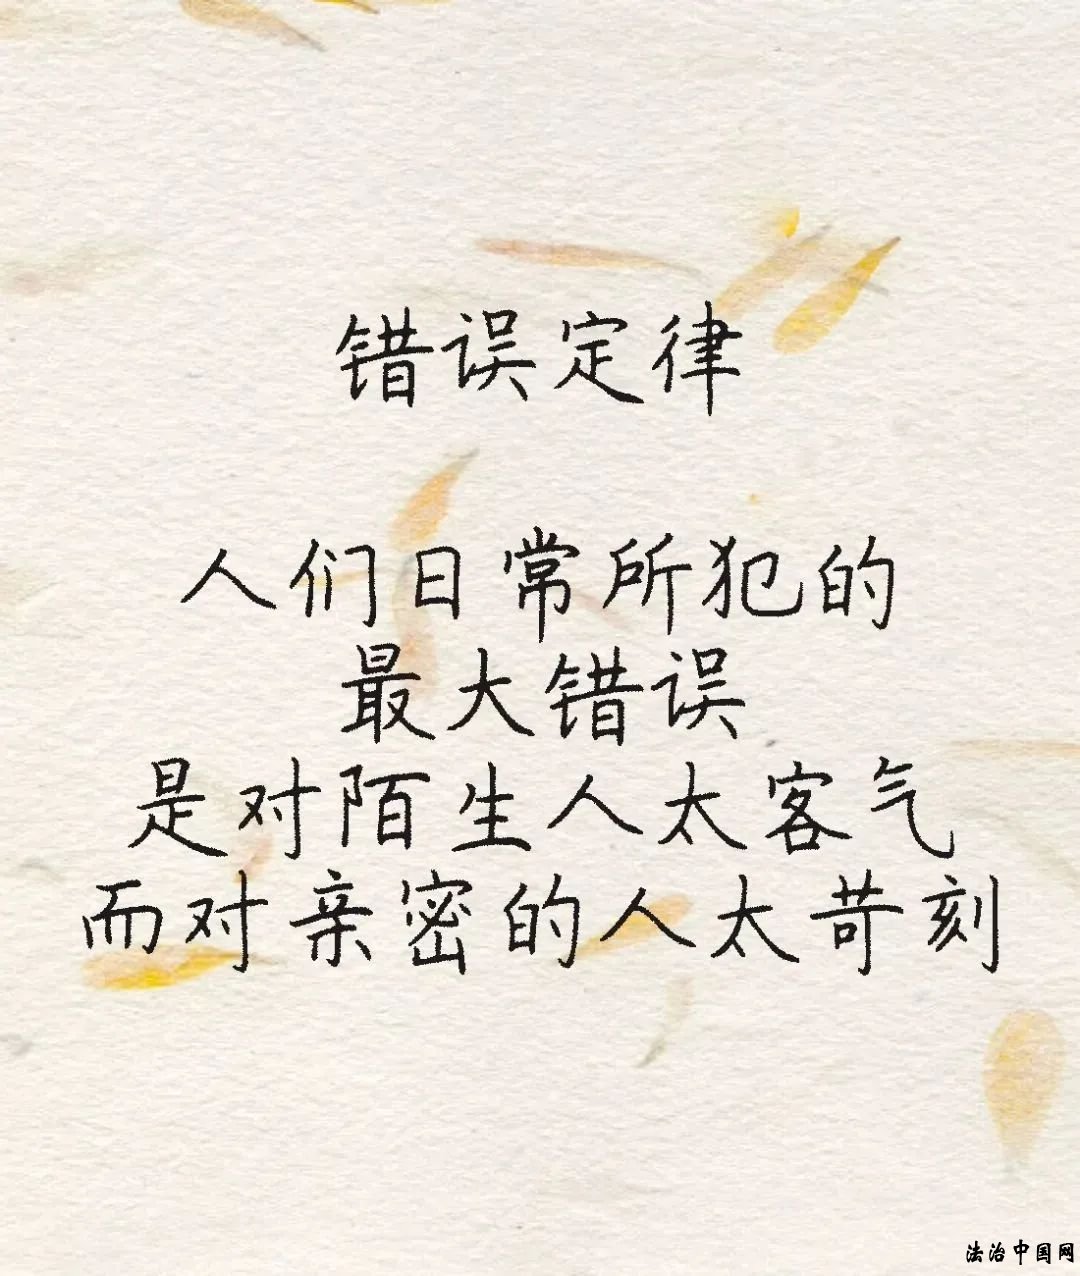 错误定律
人们日常所犯的
最大错误
是对陌生人太客气
而对亲密的人太苛刻
法治中国网